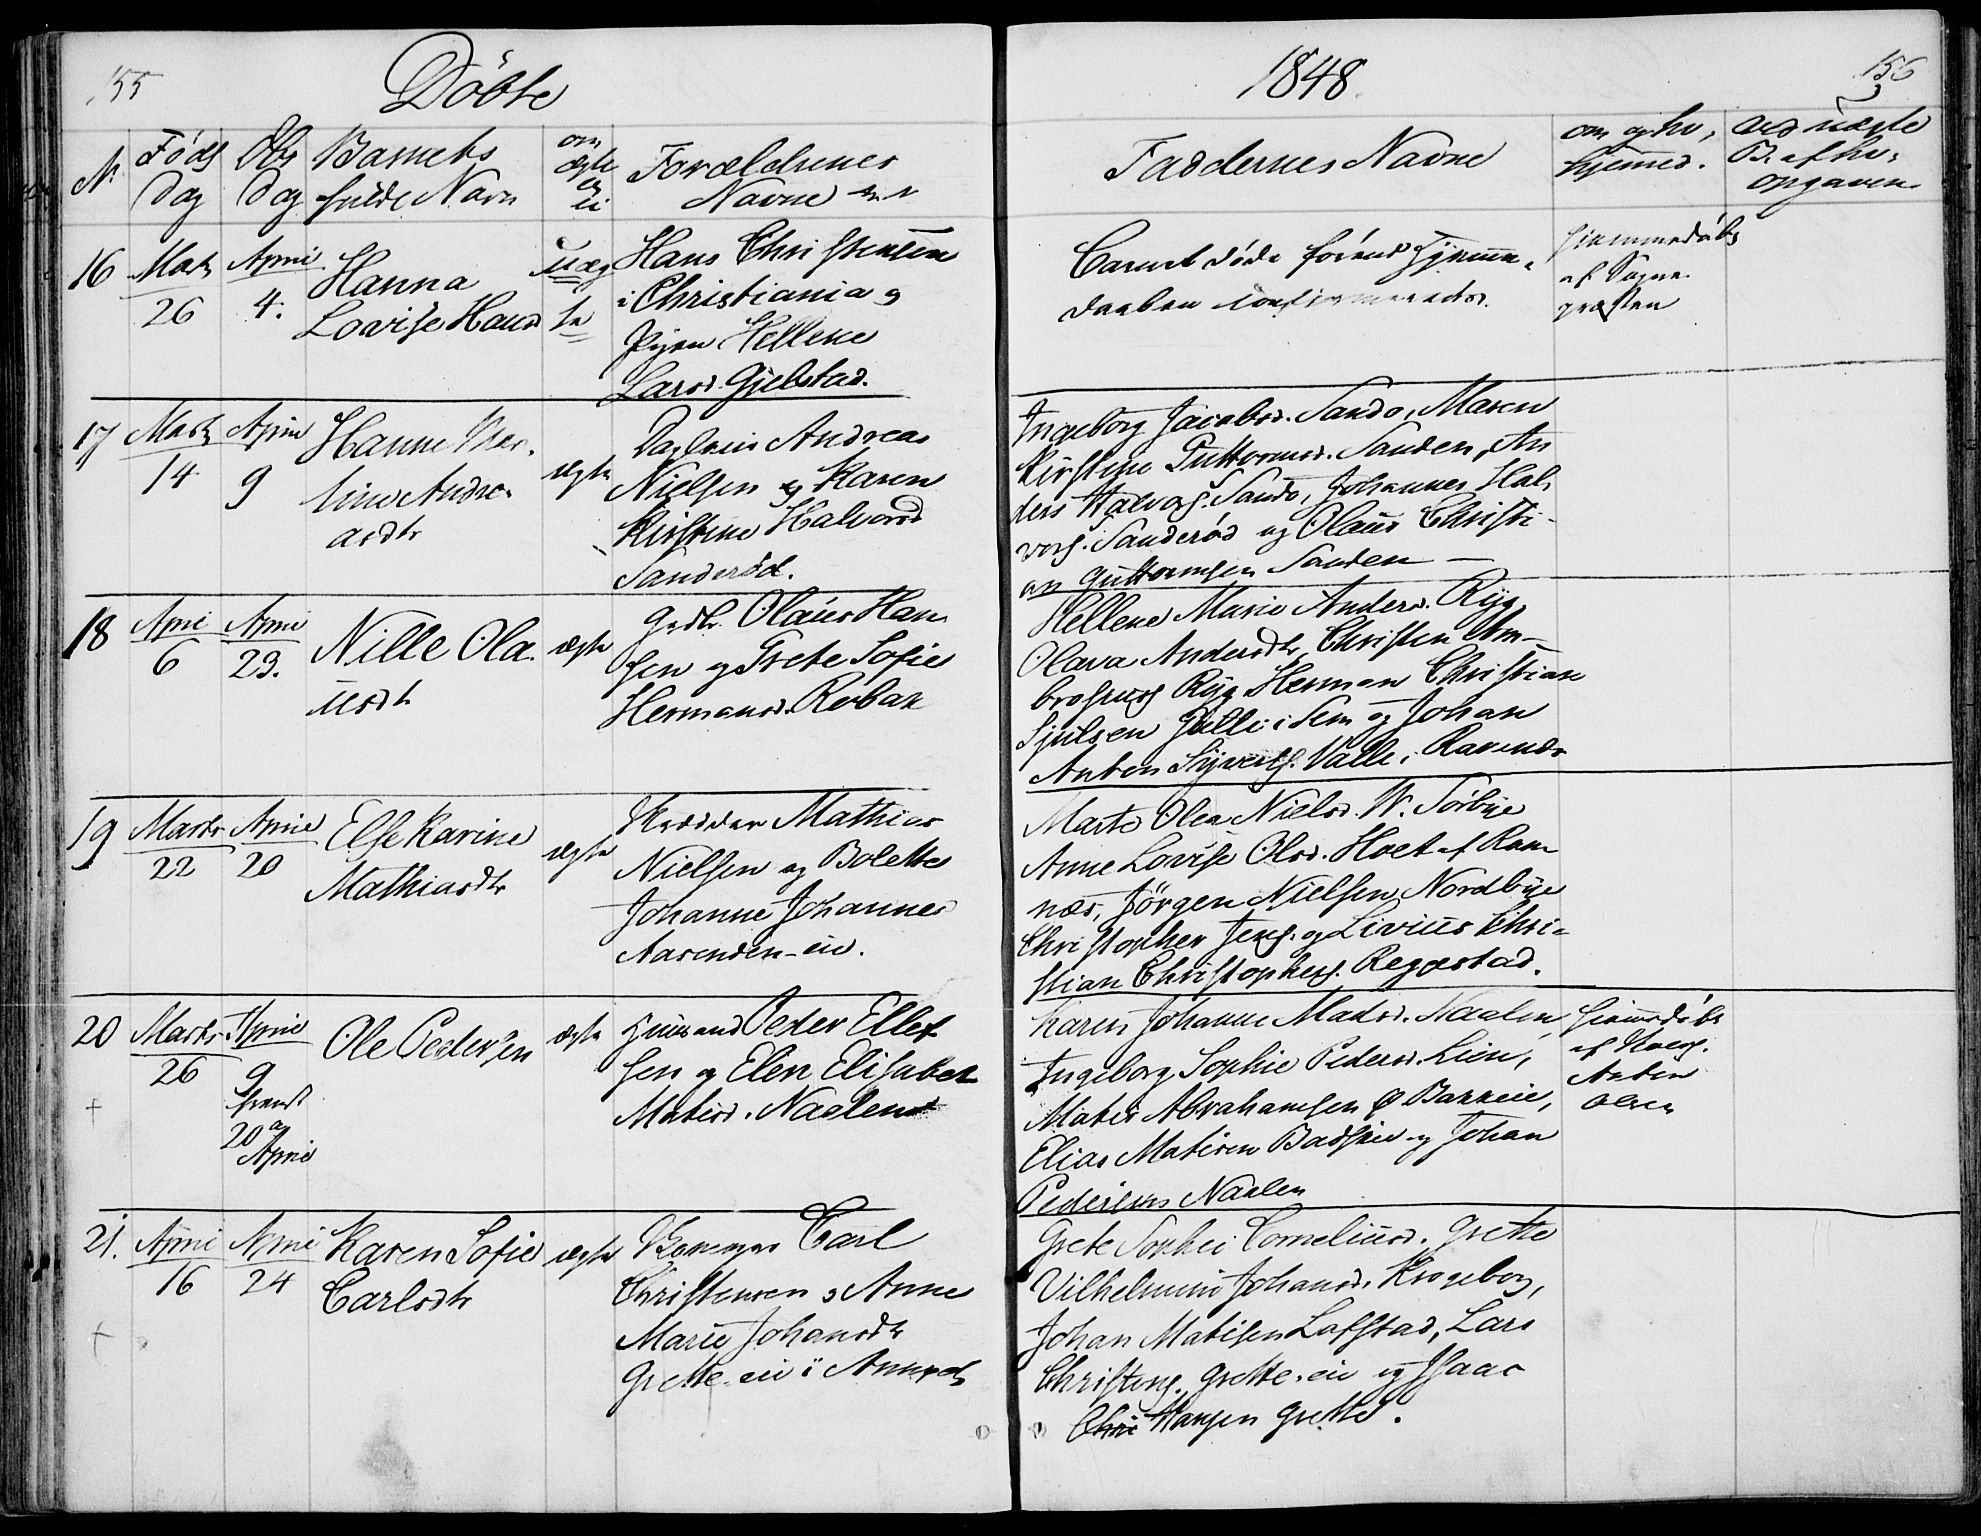 155
Döbte
1848
156
N.
Föds
Dag
Dbs
Dag
Barnets
fulde Navn
om
ægte
ei
Forældrenes
Navne
Faddernes Navne
om og hv.
hjemmed.
16
Marts
26
April
4.
Hanna
Lovise Hansd
uæg
te
Hans Christensen
i Christiania og
Pigen Hellene
Larsd. Gjelstad.
Barnet døde førend Hjemme-
daaben confirmeredes.
hjemmedöbt
af Sogne-
præsten
17
Marts
14
April
9
Hanne
Andre-
asdtr
ægte
Andreas
Nielsen og Karen
Kirstine Halvorsd
Sanderød.
Ingeborg Jacobsd. Sando, Maren
Kirstine Guttormsd. Sanden, An
ders Halvors. Sando, Johannes Hal-
vors. Sanderød og Olaus Christi-
an Guttormsen Sanden
18
April
6
April
23.
Nille Ola-
usdtr
ægte
Grdbr. Olaus Han
sen og Grete Sofie
Hermansd. Robak
Hellene Marie Andersd. Ryg
Olava Andersdtr, Christen Am-
Ryg Herman Christian
i Sem og Johan
Anton Sivertss. Valle i
19
Marts
22
April
20
Else Karine
Mathiasdtr
ægte
Skrædder Mathias
Nielsen og Bolette
Johanne Johannesd
Aasenden-eie.
Marte Olea Nielsd. N. Sörbye
Anne Lovise Olsd. Hoet af Ram
næs, Jörgen Nielsen Nordbye
Christopher Jens. og Livius Chri-
stian Christophers. Reggestad.
20
Marts
26
April
9
fremst
20 a
April
Ole Pedersen
ægte
Huusmand Peder Ellef
sen og Elen Elisabet
Matisd. Naalen
Karen Johanne Madsd. Naalen
Ingeborg Sophie Pedersd. Lien,
Matis Abrahamsen Ø Bakkeie,
Elias Matisen og Johan
Pedersens Naalen
hjemmedöbt
af
Anton
Olsen
21.
April
16
April
24
Karen Sofie
Carlsdtr
ægte
Carl
Christensen og Anne
Marie Johansdtr
Grette-eie i
Grete Sophie Corneliusd. Grette
Vilhelmine Johansd. Krogeborg,
Johan Matisen Lofstad, Lars
Christens. Grette-eie og Isaac
Hansen Grette.